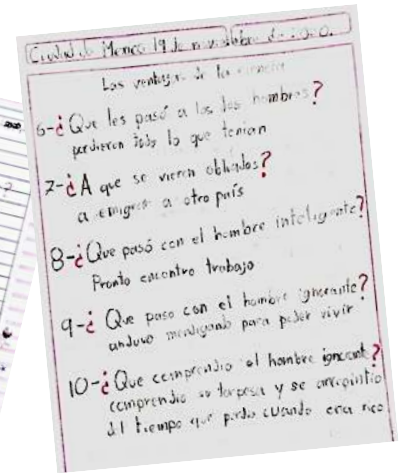 Ciudad de Mexico 19 de noviembre de
Las ventajas de la ciencia
6-¿Que les pasó a los dos hombres?
perdieron todo lo que tenian
7-¿A que se vieron obligados?
a emigrar a otro país
8-¿Que pasó con el hombre inteligente?
Pronto encontro trabajo
9-¿Que paso con el hombre ignorante?
anduvo mendigando para poder vivir
10-¿Que comprendio el hombre ignorante?
comprendio su torpesa y se arrepintio
del tiempo que perdio cuando era rico